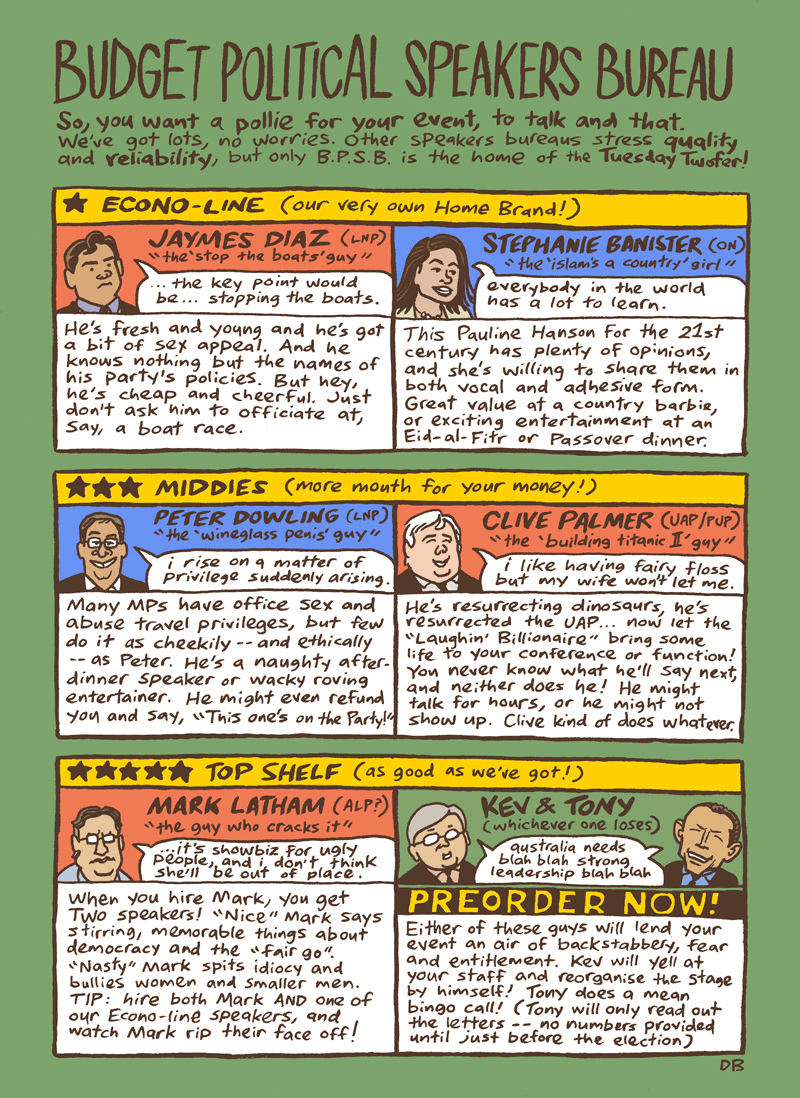 BUDGET POLITICAL SPEAKERS BUREAU
So, you want a pollie for your event, to talk and that.
We've got lots, no worries. Other speakers bureaus stress quality
and reliability, but only B.P.S.B. is the home of the Tuesday Twofer!
★ ECONO-LINE (our very own Home Brand!)
JAYMES DIAZ (LNP)
"the 'stop the boats' guy"
...the key point would
be... stopping the boats.
He's fresh and young and he's got
a bit of sex appeal. And he
knows nothing but the names of
his party's policies. But hey,
he's cheap and cheerful. Just
don't ask him to officiate at,
say, a boat race.
STEPHANIE BANISTER (ON)
"the 'islam's a country' girl"
everybody in the world
has a lot to learn.
This Pauline Hanson for the 21st
century has plenty of opinions,
and she's willing to share them in
both vocal and adhesive form.
Great value at a country barbie,
or exciting entertainment at an
Eid-al-Fitr or Passover dinner.
★★★ MIDDIES (more mouth for your money!)
PETER DOWLING (LNP)
"the 'wineglass penis' guy"
i rise on a matter of
privilege suddenly arising.
Many MPs have office sex and
abuse travel privileges, but few
do it as cheekily -- and ethically
-- as Peter. He's a naughty after-
dinner speaker or wacky roving
entertainer. He might even refund
you and say, "This one's on the Party!"
CLIVE PALMER (UAP/PUP)
"the 'building titanic II' guy"
i like having fairy floss
but my wife won't let me.
He's resurrecting dinosaurs, he's
resurrected the UAP... now let the
"Laughin' Billionaire" bring some
life to your conference or function!
You never know what he'll say next,
and neither does he! He might
talk for hours, or he might not
show up. Clive kind of does whatever.
★★★★★ TOP SHELF (as good as we've got!)
MARK LATHAM (ALP?)
"the guy who cracks it"
...it's showbiz for ugly
people, and i don't think
she'll be out of place.
When you hire Mark, you get
TWO speakers! "Nice" Mark says
stirring, memorable things about
democracy and the "fair go".
"Nasty" Mark spits idiocy and
bullies women and smaller men.
TIP: hire both Mark AND one of
our Econo-line speakers, and
watch Mark rip their face off!
KEV & TONY
(whichever one loses)
australia needs
blah blah strong
leadership blah blah
PREORDER NOW!
Either of these guys will lend your
event an air of backstabbery, fear
and entitlement. Kev will yell at
your staff and reorganise the stage
by himself! Tony does a mean
bingo call! (Tony will only read out
the letters -- no numbers provided
until just before the election)
DB